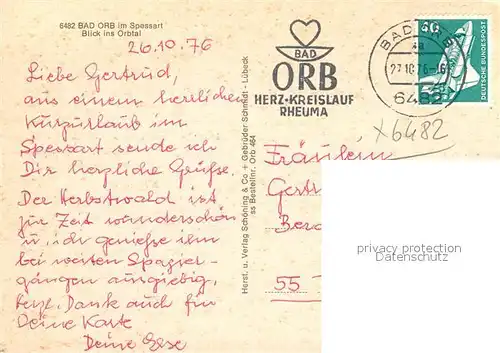 6482 BAD ORB im Spessart
Blick ins Orbtal
26.10.76
Liebe Gertrud,
aus einem herrlichen
Kurzurlaub im
Spessart sende ich
Dir herzliche Grüße.
Der Herbstwald ist
zur Zeit wunderschön
u. ich genieße ihn
bei weiten Spazier-
gängen ausgiebig.
Herzl. Dank auch für
Deine Karte
Deine
BAD
ORB
HERZ-KREISLAUF
RHEUMA
BAD ORB
27.10.76-16
6482
DEUTSCHE BUNDESPOST
x6482
Herst. u. Verlag Schöning & Co + Gebrüder Schmidt · Lübeck
ss Bestellnr. Orb 464
Fräulein
Gertr
55
privacy protection
Datenschutz